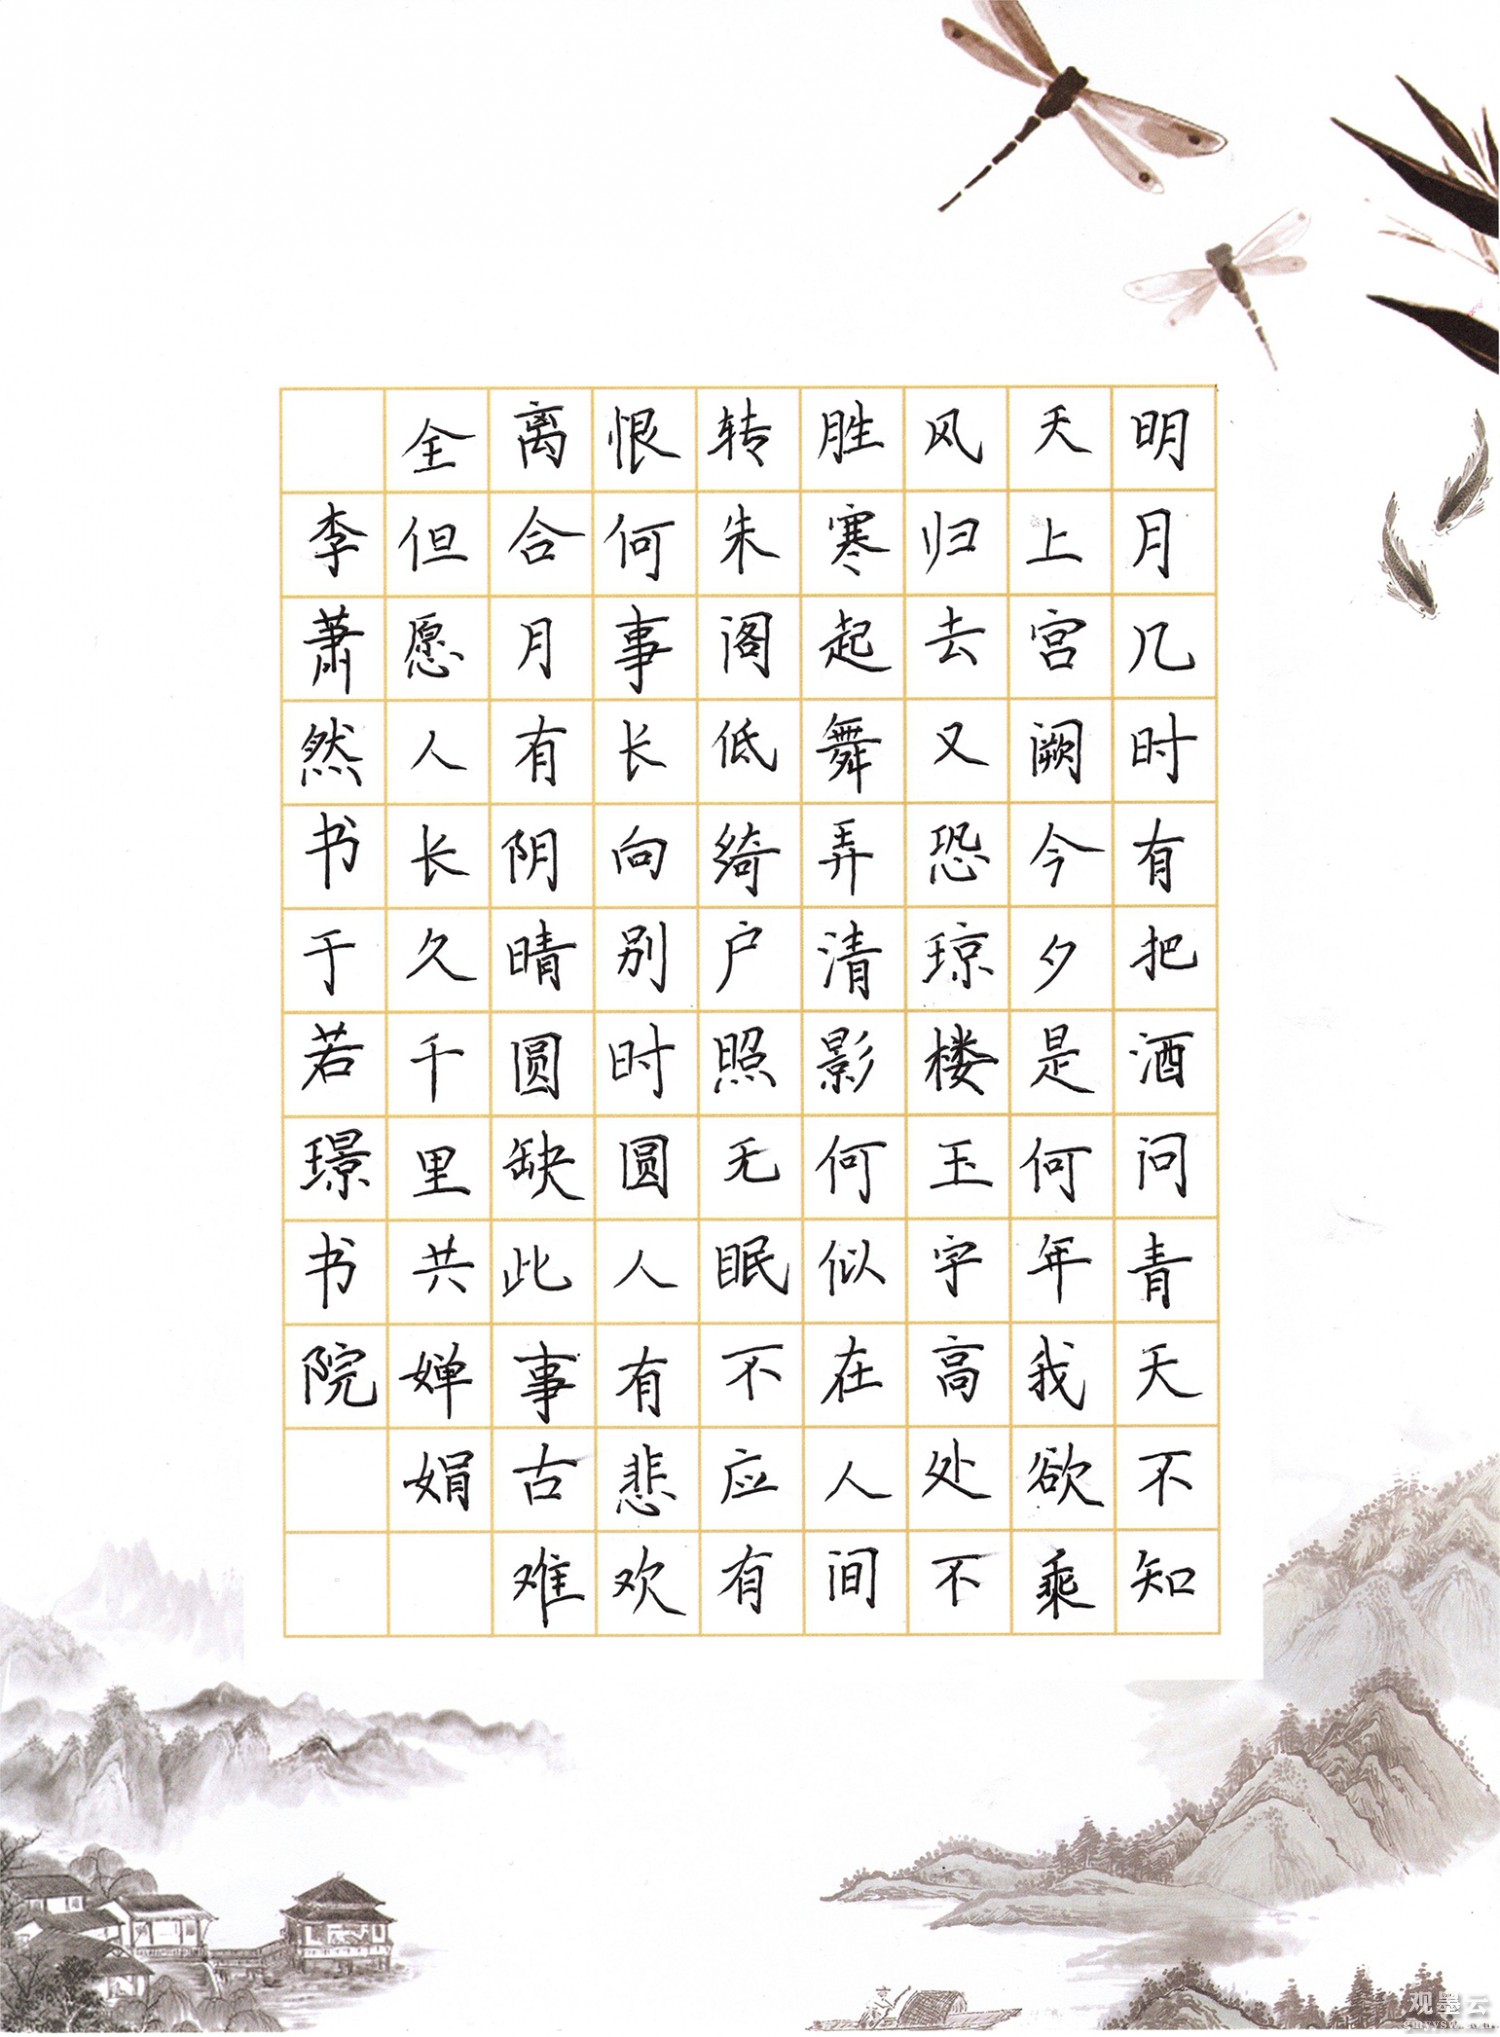 明月几时有把酒问青天不知
天上宫阙今夕是何年我欲乘
风归去又恐琼楼玉宇高处不
胜寒起舞弄清影何似在人间
转朱阁低绮户照无眠不应有
恨何事长向别时圆人有悲欢
离合月有阴晴圆缺此事古难
全但愿人长久千里共婵娟
李萧然书于若璟书院
观墨云